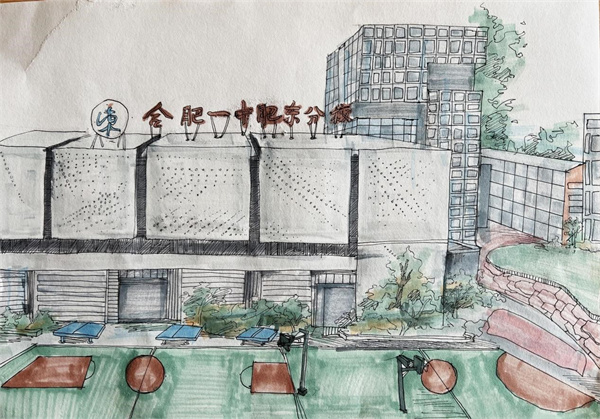 合肥一中肥东分校